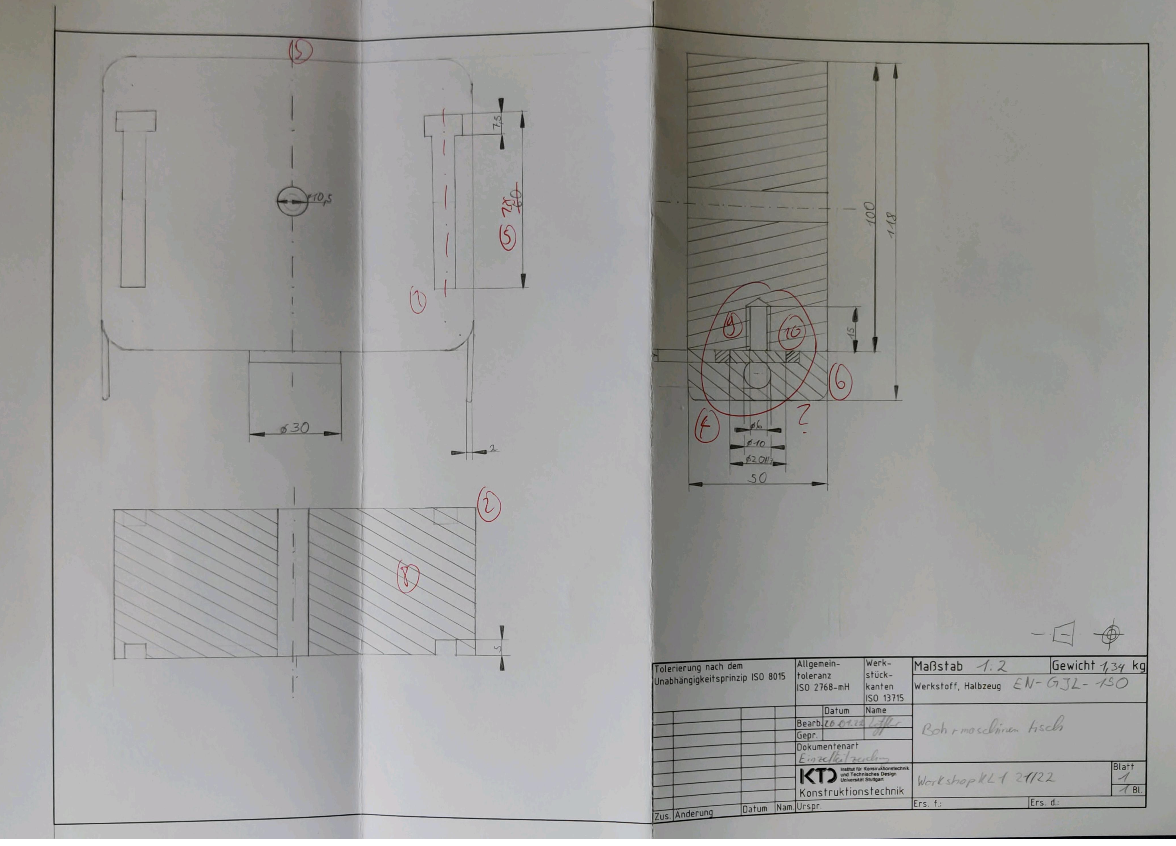 3
7,5
ø10,5
2x
60
5
1
100
118
9
10
15
6
7
?
ø10
ø20H
50
ø30
2
2
8
5
Tolerierung nach dem
Unabhängigkeitsprinzip ISO 8015
Allgemein-
toleranz
ISO 2768-mH
Werk-
stück-
kanten
ISO 13715
Maßstab 1:2
Gewicht 1,34 kg
Werkstoff, Halbzeug EN-GJL-150
Datum
Name
Bearb.
Gepr.
Bohrmaschinentisch
Dokumentenart
Einzelteilzeichn
KTD Institut für Konstruktionstechnik
und Technisches Design
Universität Stuttgart
Konstruktionstechnik
Workshop KL1 21/22
Blatt
1
1 Bl.
Zus. Änderung
Datum
Nam.
Urspr.
Ers. f.:
Ers. d.: